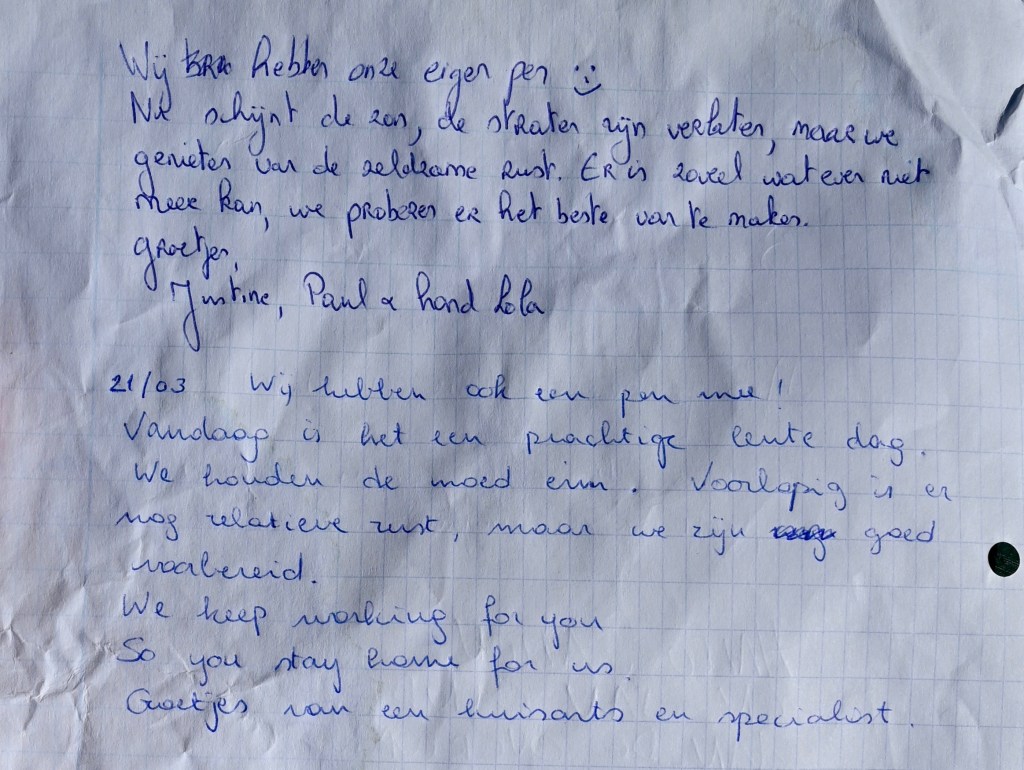 Wij hebben onze eigen pen :)
Nu schijnt de zon, de straten zijn verlaten, maar we
genieten van de zeldzame rust. Er is zoveel wat even niet
meer kan, we proberen er het beste van te maken.
Groetjes,
Justine, Paul & hond Lola
21/03 Wij hebben ook een pen mee!
Vandaag is het een prachtige lente dag.
We houden de moed erin. Voorlopig is er
nog relatieve rust, maar we zijn goed
voorbereid.
We keep working for you
So you stay home for us.
Groetjes van een huisarts en specialist.